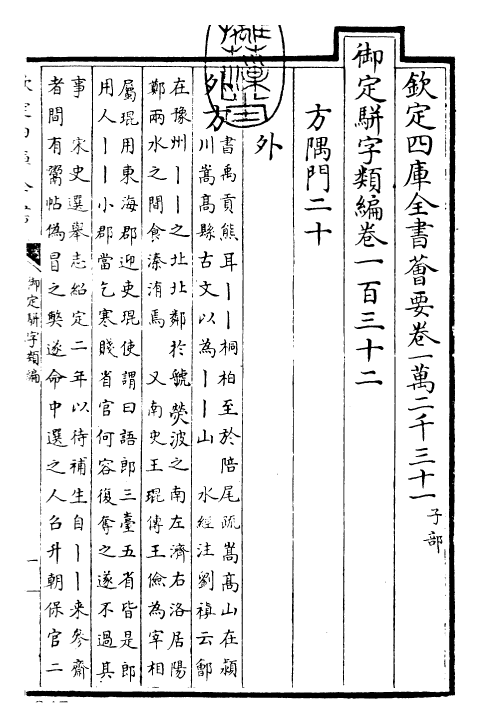 欽定四庫全書薈要卷一萬二千三十一 子部
御定駢字類編卷一百三十二
方隅門二十
外
外方 書禹貢熊耳丨丨桐柏至於陪尾疏嵩高山在潁
川嵩高縣古文以為丨丨山 水經注劉禎云鄶
在豫州丨丨之北北鄰於虢滎波之南左濟右洛居陽
鄭兩水之間食溱洧焉 又南史王琨傳王儉為宰相
屬琨用東海郡迎吏琨使謂曰語郎三臺五省皆是郎
用人丨丨小郡當乞寒賤省官何容復奪之遂不過其
事 宋史選舉志紹定二年以待補生自丨丨來參齋
者間有鬻帖偽冒之弊遂命中選之人召升朝保官二
御定駢字類編
一